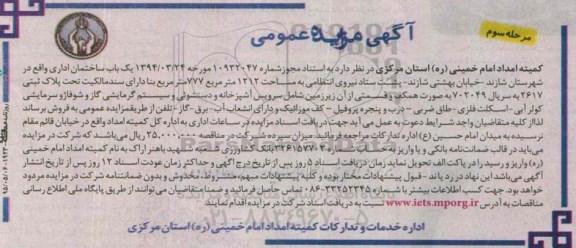 مرحله سوم
آگهی مزایده عمومی
کمیته امداد امام خمینی (ره) استان مرکزی در نظر دارد به استناد مجوز شماره ۱۰۹۳۲۰۴۷ مورخه ۱۳۹۴/۰۳/۲۴ یک باب ساختمان اداری واقع در
شهرستان شازند -خیابان بهشتی شازند- پشت ستاد نیروی انتظامی به مساحت ۱۲۱۲ متر مربع ۷۷۷ متر مربع بنا دارای سند مالکیت تحت پلاک ثبتی
۲۶۱۷ به سریال ۷۰۲۰۴۹ به صورت همکف و قسمتی از آن زیرزمین شامل سرویس آشپزخانه و دستشوئی و سیستم گرمایشی گاز و شوفاژ و سرمایشی
کولر آبی - اسکلت فلزی - طاق ضربی - درب و پنجره پروفیل - کف موزائیک و دارای انشعاب آب - برق - گاز - تلفن از طریق مزایده عمومی به فروش برساند
لذا از کلیه متقاضیان واجد شرایط دعوت به عمل می آید جهت دریافت اسناد مزایده در ساعات اداری به اداره کل کمیته امداد واقع در خیابان قائم مقام
نرسیده به میدان امام حسین (ع) اداره تدارکات مراجعه فرمائید میزان سپرده شرکت در مناقصه ۲۵,۰۰۰,۰۰۰ ریال می باشد که شرکت در مزایده
می باید در قالب ضمانت نامه بانکی و یا واریز به حساب بانک کشاورزی شهید باهنر اراک به نام کمیته امداد امام خمینی
(ره) واریز و رسید را در پاکت الف تحویل نماید زمان دریافت اسناد ۵ روز پس از تاریخ درج آگهی و حداکثر زمان عودت اسناد ۱۲ روز پس از تاریخ انتشار
آگهی می باشد این نهاد در رد یا قبول پیشنهادات مختار بوده و کلیه پیشنهادات مبهم، مشروط، مخدوش و بدون ضمانتنامه شرکت در مزایده مردود
خواهد بود. جهت کسب اطلاعات بیشتر با شماره ۳۳۲۵۲۳۴۵-۰۸۶ تماس حاصل فرمائید و ضمنا متقاضیان می توانند از طریق پایگاه ملی اطلاع رسانی
مناقصات به آدرس www.iets.mporg.ir نسبت به دریافت اسناد شرکت در مزایده اقدام نمایند
اداره خدمات و تدارکات کمیته امداد امام خمینی (ره) استان مرکزی
۰۲۱-۸۸۳۴۹۶۷۰-۵